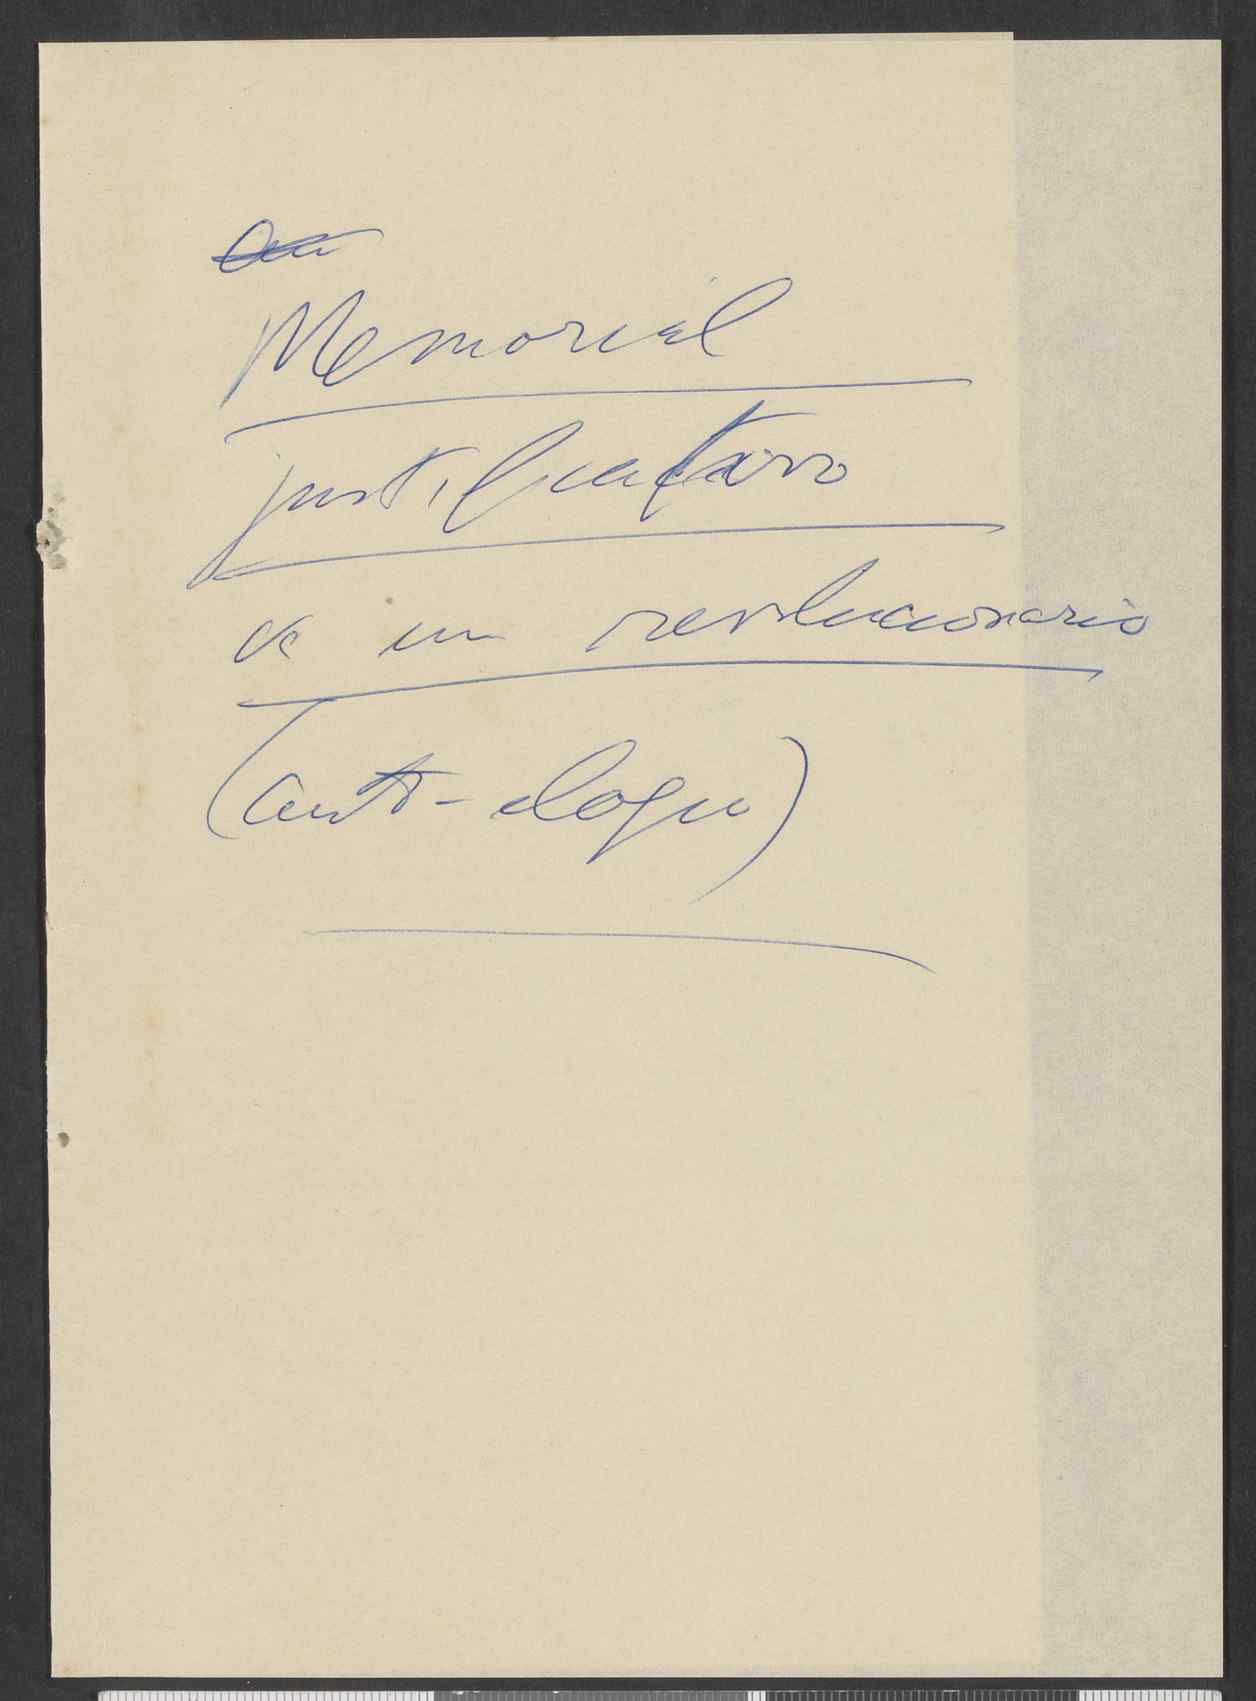 Memorial
justificatorio
de un revolucionario
(auto-elogio)